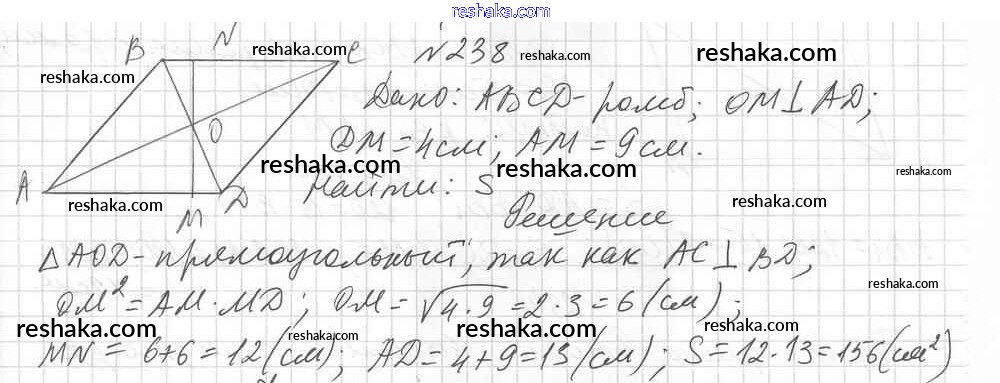 reshaka.com
B N C №238 reshaka.com reshaka.com reshaka.com
reshaka.com Дано: ABCD-ромб; OM⊥AD;
O DM=4см; AM=9см. reshaka.com reshaka.com
A reshaka.com M D Найти: S reshaka.com
Решение
△AOD-прямоугольный, так как AC⊥BD;
OM²=AM·MD; OM=√4·9=2·3=6(см);
reshaka.com reshaka.com reshaka.com reshaka.com reshaka.com
MN=6+6=12(см); AD=4+9=13(см); S=12·13=156(см²)